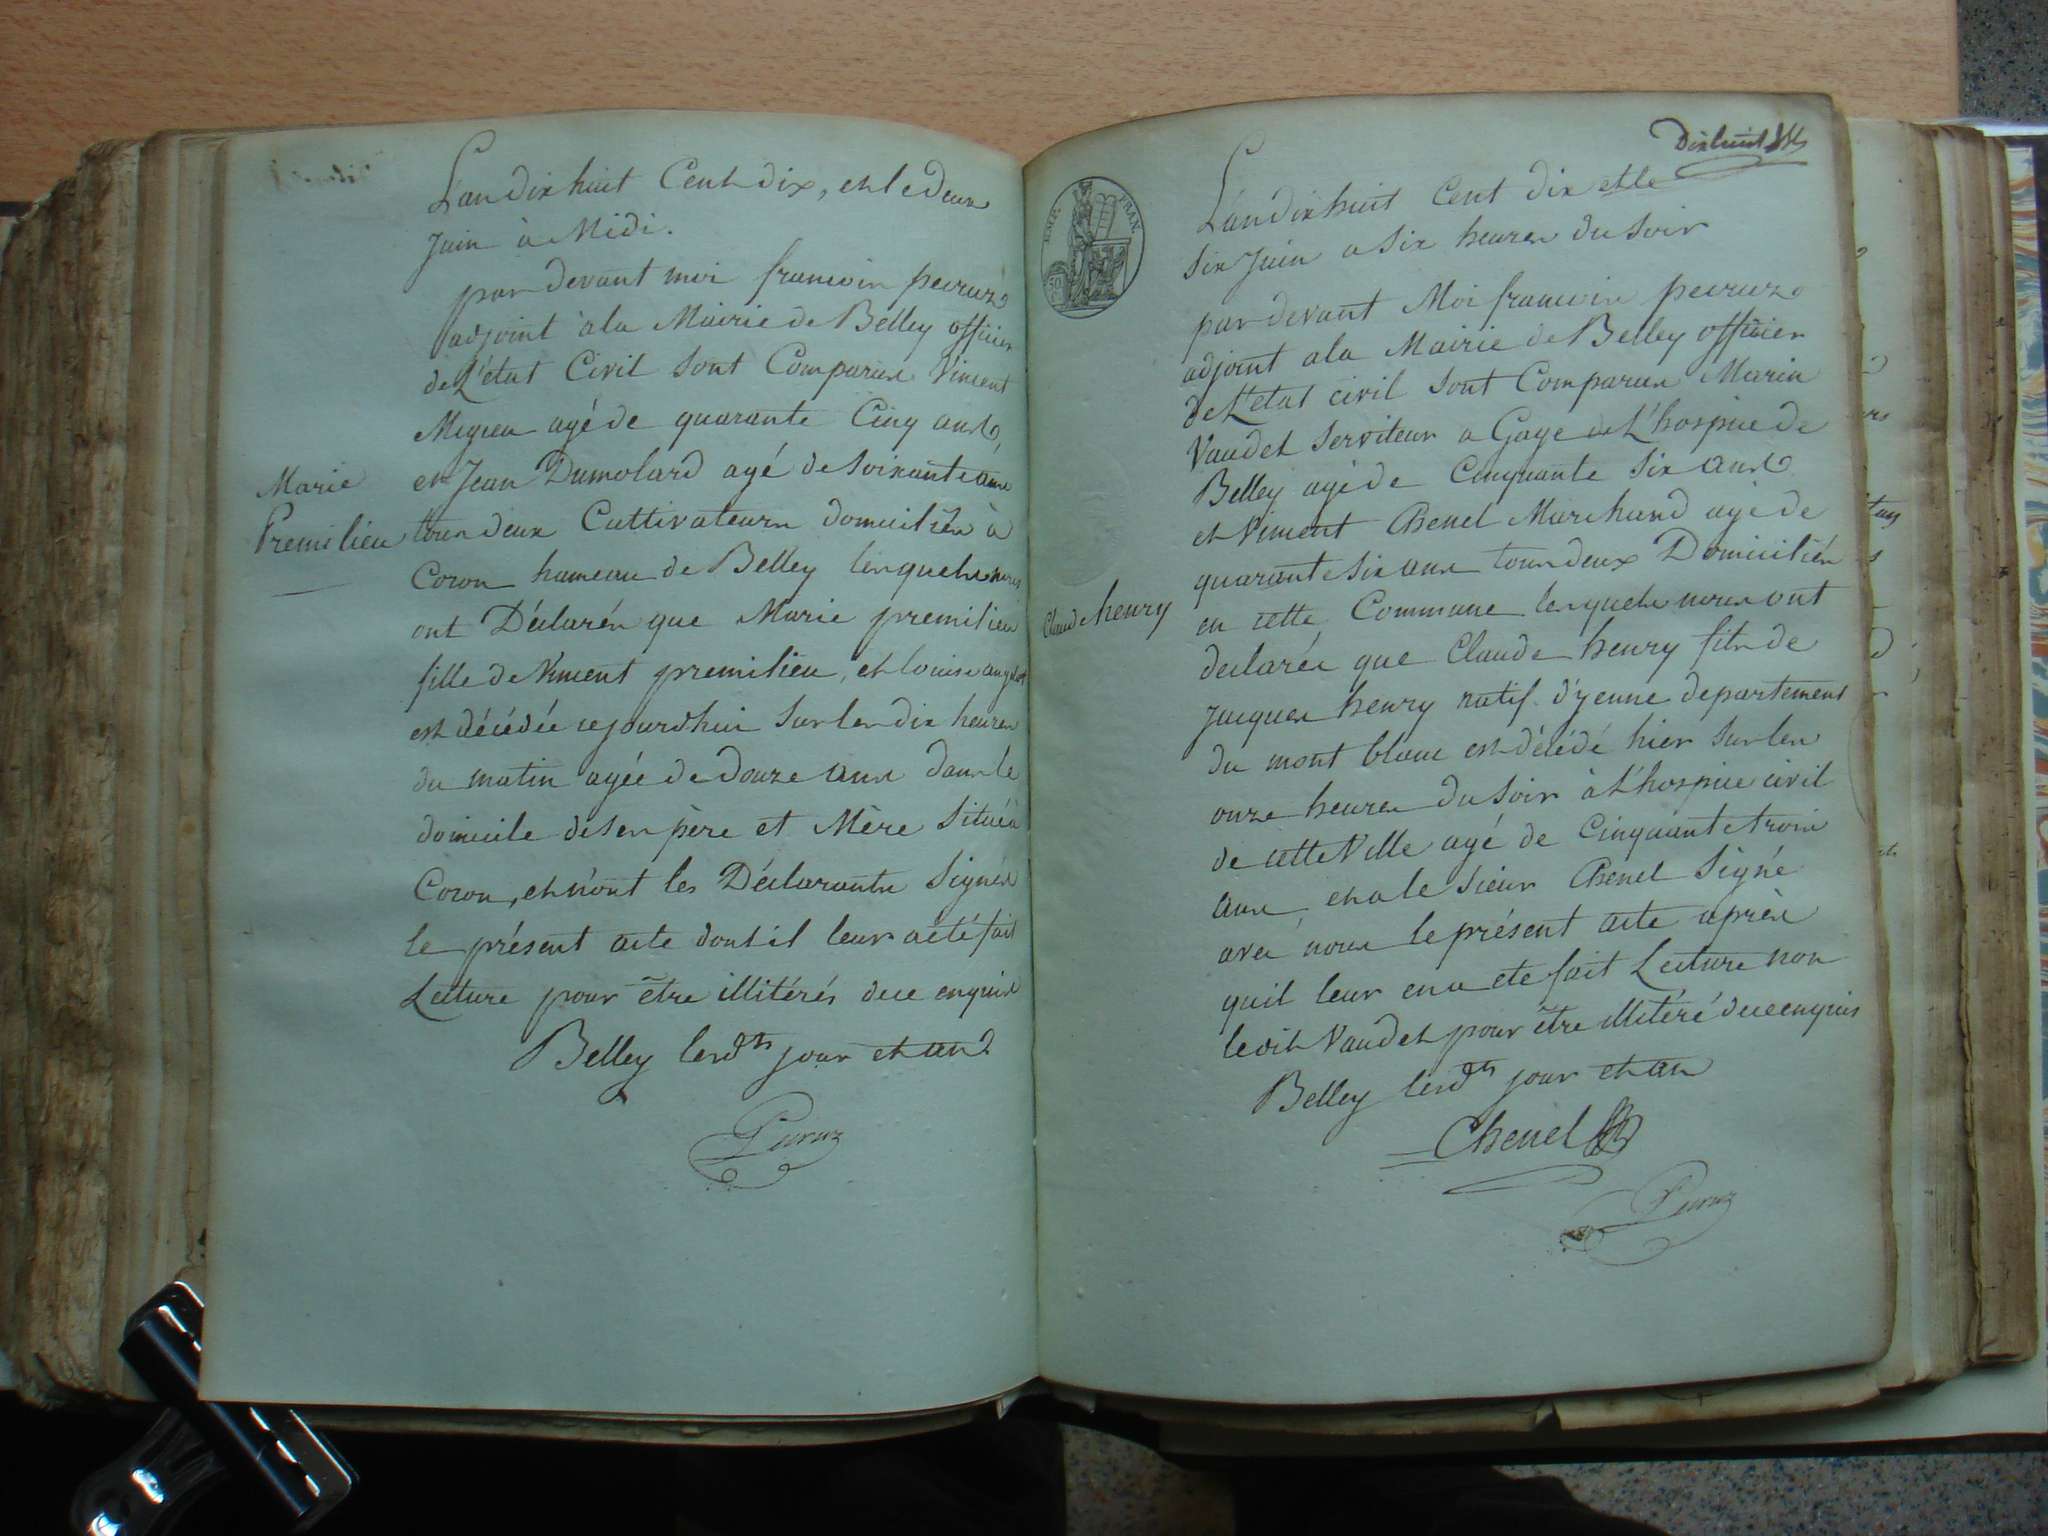 L'an dix huit Cent dix, et le deux
Juin à Midi.
par devant moi francois peyruz
adjoint à la Mairie de Belley officier
de L'état Civil sont Comparus Vincent
Migieu agé de quarante Cinq ans,
et Jean Dumolard agé de soixante ans
Marie
Premilieu
tous deux Cultivateurs domiciliés à
Coron hameau de Belley lesquels nous
ont Déclarés que Marie premilieu
fille de Vincent premilieu, et louise
est décédée cejourdhui sur les dix heures
du matin agée de douze ans dans le
domicile de ses père et Mère situé à
Coron, et n'ont les Déclarants signés
le présent acte dont il leur a été fait
Lecture pour être illitérés de ce enquis
Belley lesdts jour et an
Dixhuit
IMP. FRAN.
50
L'an dix huit Cent dix et le
six Juin a six heures du soir
par devant Moi francois peyruz
adjoint a la Mairie de Belley officier
de L'etat civil sont Comparus Marin
Vaudet serviteur a Gage de L'hospice de
Belley agé de Cinquante six ans
et Vincent Chenel Marchand agé de
quarante six ans tous deux Domiciliés
Claude henry
en cette Commune lesquels nous ont
declarés que Claude henry fils de
Jacques henry natif d'yenne departement
du mont blanc est décédé hier sur les
onze heures du soir à L'hospice civil
de cette Ville agé de Cinquante trois
ans, et a le sieur Chenel Signé
avec nous le présent acte après
quil leur en a eté fait Lecture non
ledit Vaudet pour être illitéré de ce enquis
Belley lesdts jour et an
Chenel